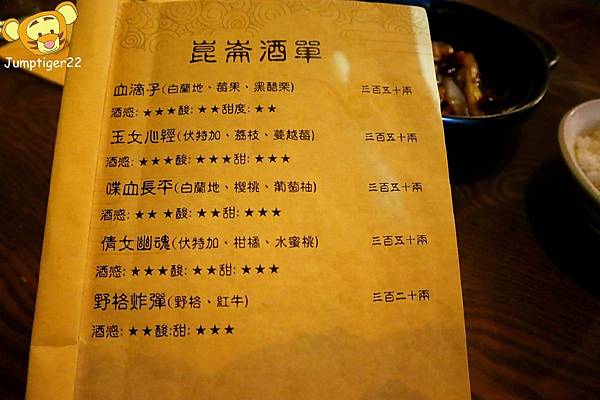 Jumptiger22
崑崙酒單
血滴子(白蘭地、莓果、黑醋栗) 三百五十兩
酒感: ★★★酸: ★★甜度: ★★
玉女心經(伏特加、荔枝、蔓越莓) 三百五十兩
酒感: ★★★酸: ★★★甜: ★★★
喋血長平(白蘭地、櫻桃、葡萄柚) 三百五十兩
酒感: ★★★酸: ★★甜: ★★★
倩女幽魂(伏特加、柑橘、水蜜桃) 三百五十兩
酒感: ★★★酸: ★★甜: ★★★
野格炸彈(野格、紅牛) 三百二十兩
酒感: ★★酸:甜: ★★★